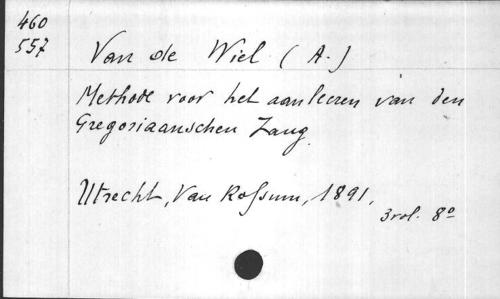 460
557
Van de Wiel (A.)
Methode voor het aanleeren van den
Gregoriaanschen Zang.
Utrecht, Van Rossum, 1891,
3 vol. 8°